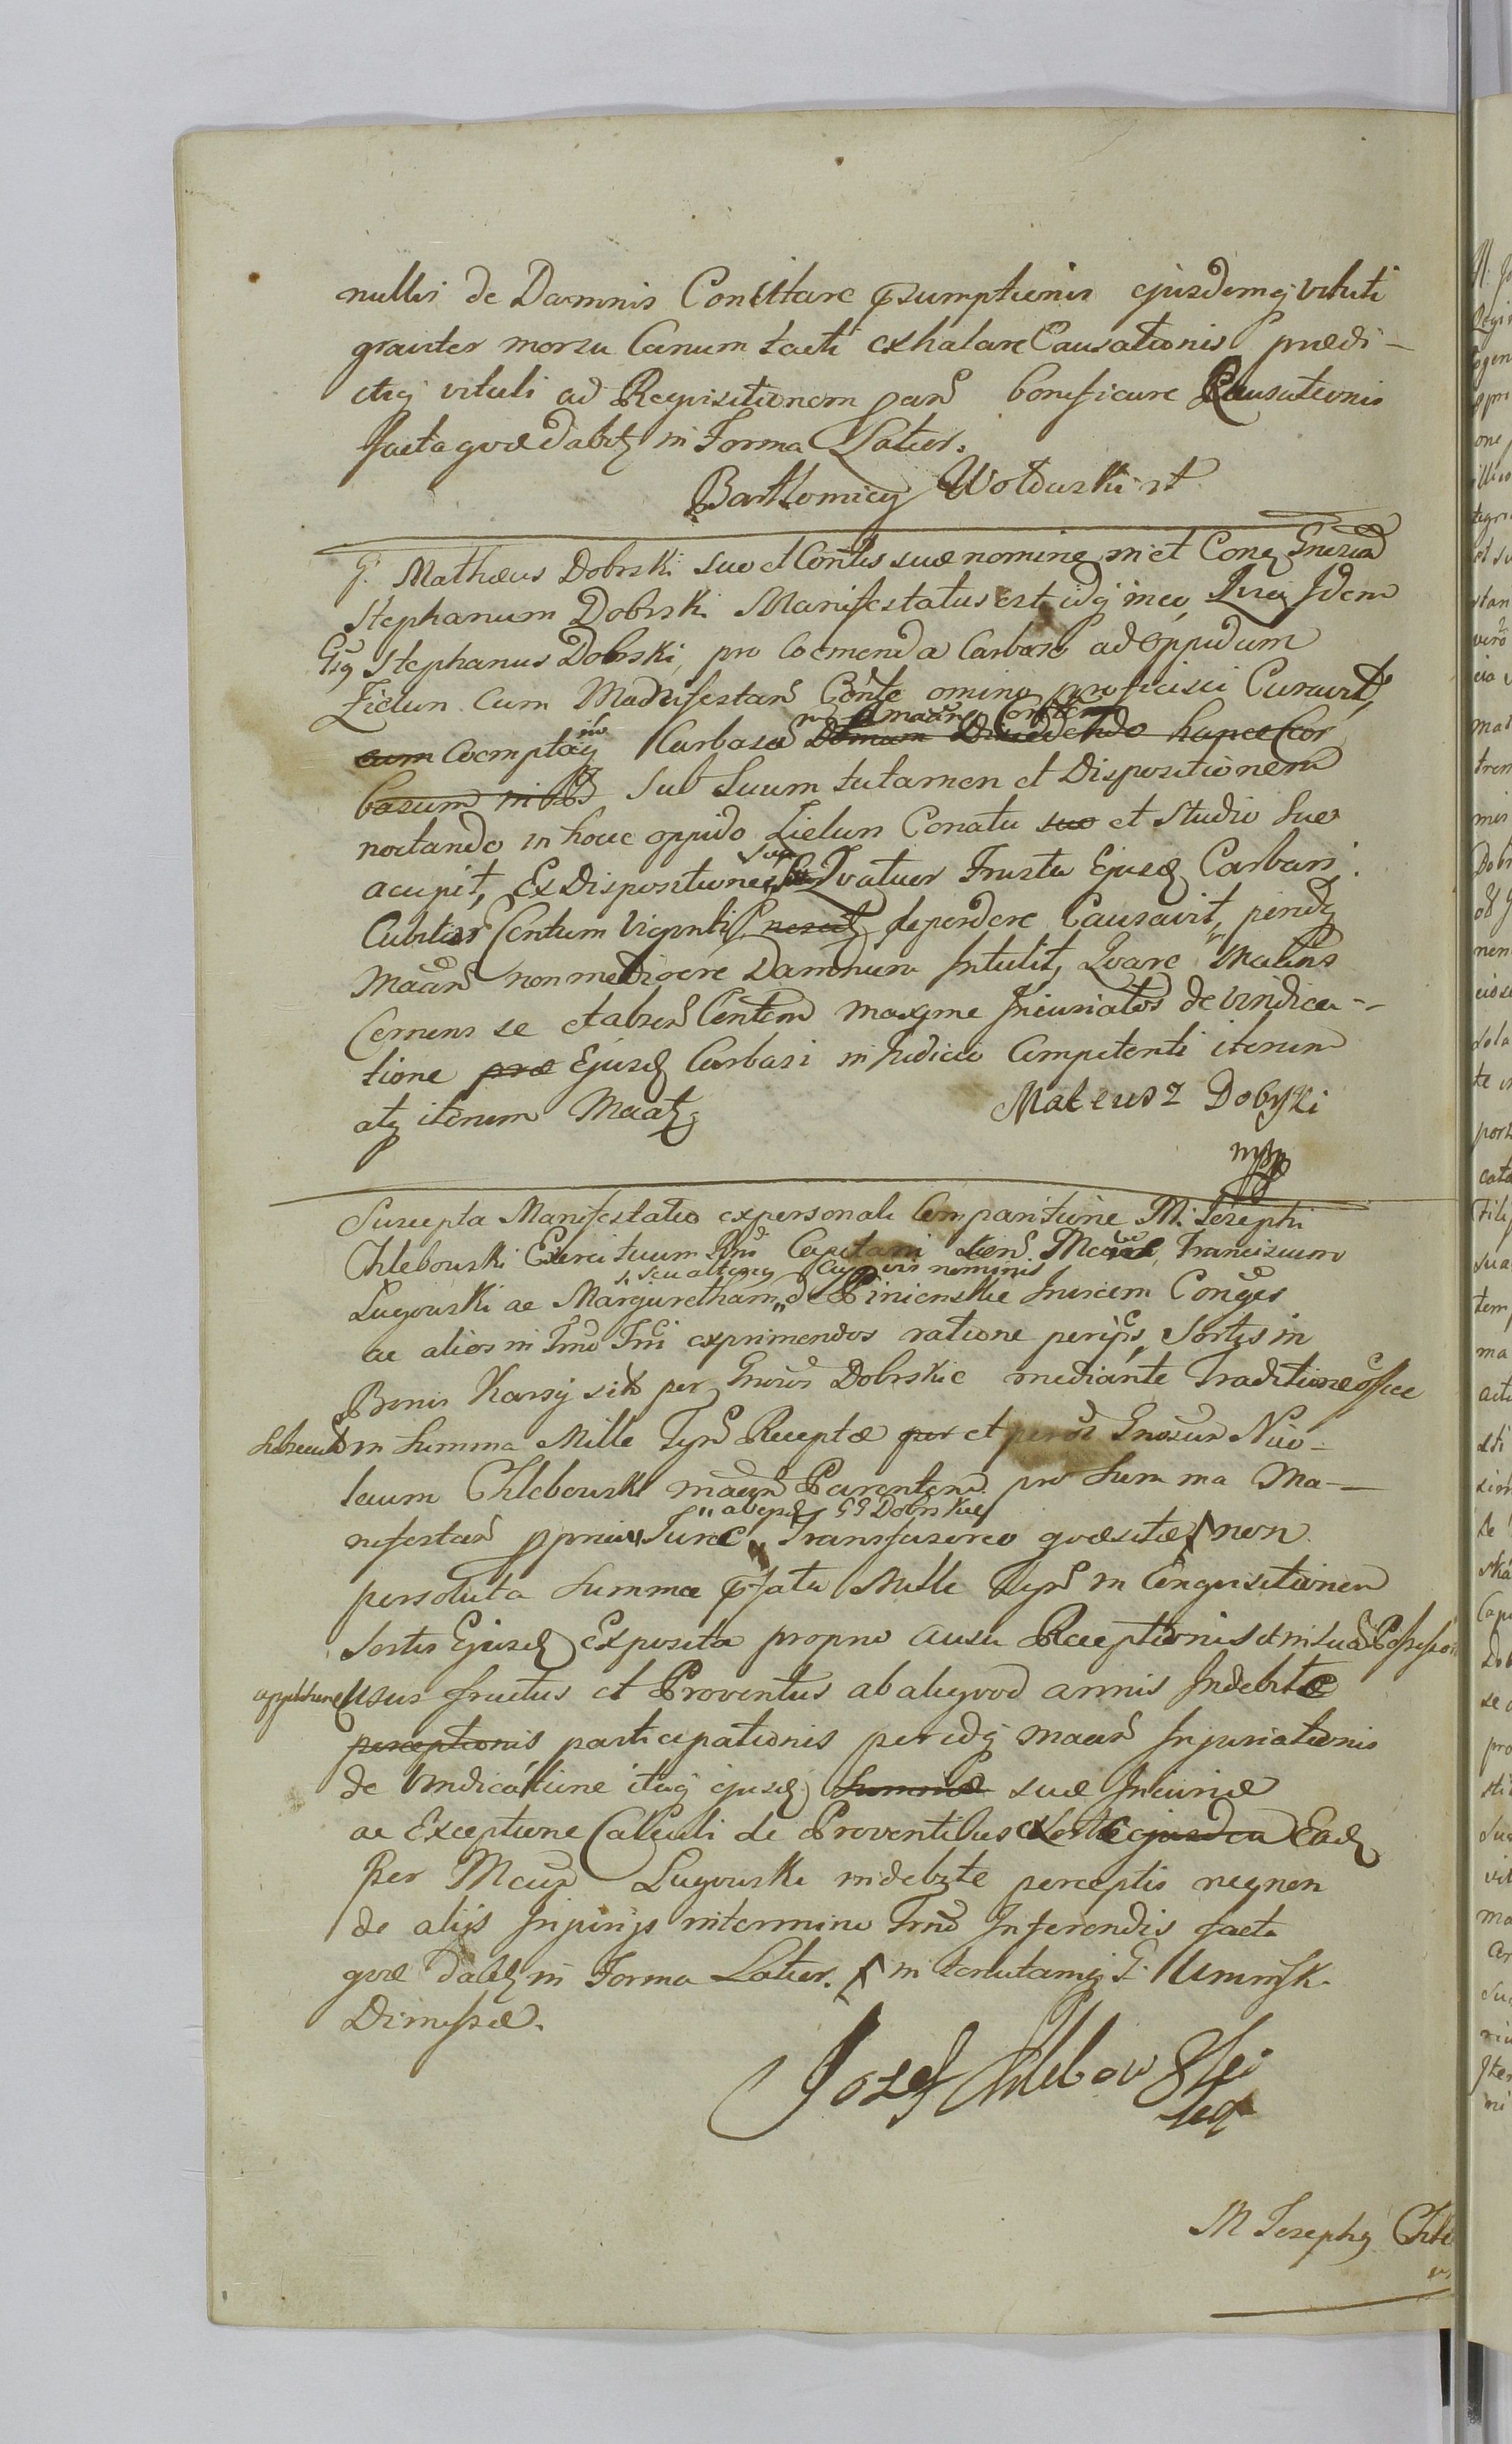 nullis de Damnis Consttare psumptionis ejusdemq vituli
graviter morsu Canum tacti exhalare Causationis prædi-
ctiq vituli ad Requisitionem parñ bonificare Causationis
facta quæ dabitz in Forma Latior.
Bartłomiey Wolduski st
G. Mathæus Dobrski suo et Contis suæ nomine in et Conq Gnerũ
Stephanum Dobrski Manifestatus est idq ineo, Quia Idem
Gsq Stephanus Dobrski, pro Coemenda Carbaso ad oppidum
Zielun Cum Manifestanñ Conte omine proficisci Curavit,
eum Coemptaq Carbasæ Domum Discedendo hance Car
basum sub Suum tutamen et Dispositionem
noctando in hocce oppido Zielun Conatu suo et Studio suo
accepit, Ex Dispositione sua Quatuor Frusta Ejusd Carbasi
Cubitor Centum Viginti deperdere Causavit, peridq
Maanñ non mediocre Damnum Intulit, Quare Malins
Cernens se et absenñ Contem maxime Iniuriatos de vindica-
tione præ Ejusd Carbasi in Judicio Competenti iterum
atq iterum Maatz
Mateusz Dobrski
mpp
Suscepta Manifestatio ex personali Comparitione M. Josephi
Chlebowski Exercituum Capitani Francisum
seu alterius Cujusvis nominis
Lugowski ac Margaretham de Pinienskie Invicem Conges
ac alios in Tmno Tni exprimendos ratione perijs, Sortis in
Bonis Karsy sit per Gnosos Dobrskie mediante Traditione offce
in Summa Mille Tynf Receptæ per et Gnosum Nico-
laum Chlebowski maanñ Parentem pro Summa Ma-
ab eisd GG Dobrskie
nifestanñ pprio Jure Transfusorео quæsitæ non
persoluta Summa pfata Mille Tynf in Conquisitionem
Sortis Ejusd Exposita proprio ausu Receptionis et in suã Possession
appulsione Usus fructus et Proventus ab aliquod annis Indebitæ
perceptionis participationis peridq maanñ Injuriationis
de Vindicatione itaq ejusd Summæ suæ Iniuriæ
ac Exceptione Calculi de Proventibus ex Sorte ejusdem Ead
Per Mcum Lugowski indebyte perceptis necnon
de alijs Injurijs in termino Tmno Inferendis facta
quæ dabitz in Forma Latior. in tenutamq G. Uminsk.
Dimissæ.
Jozef Chlebowski
M Josephq Chle